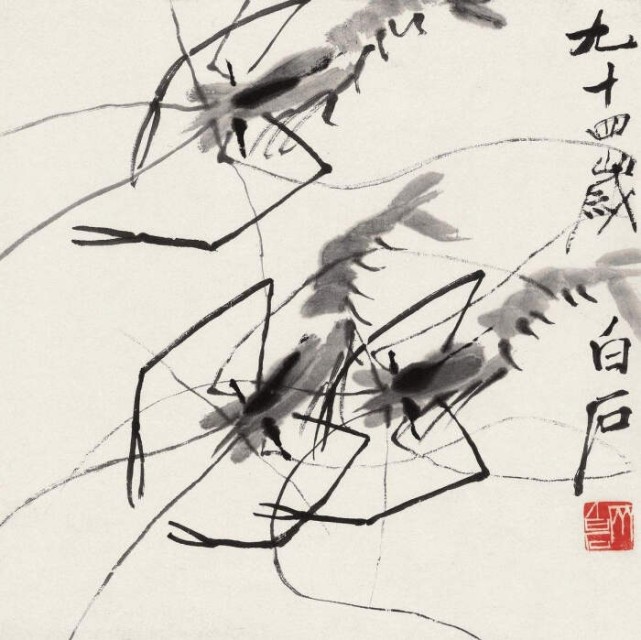 九十四歲
白石